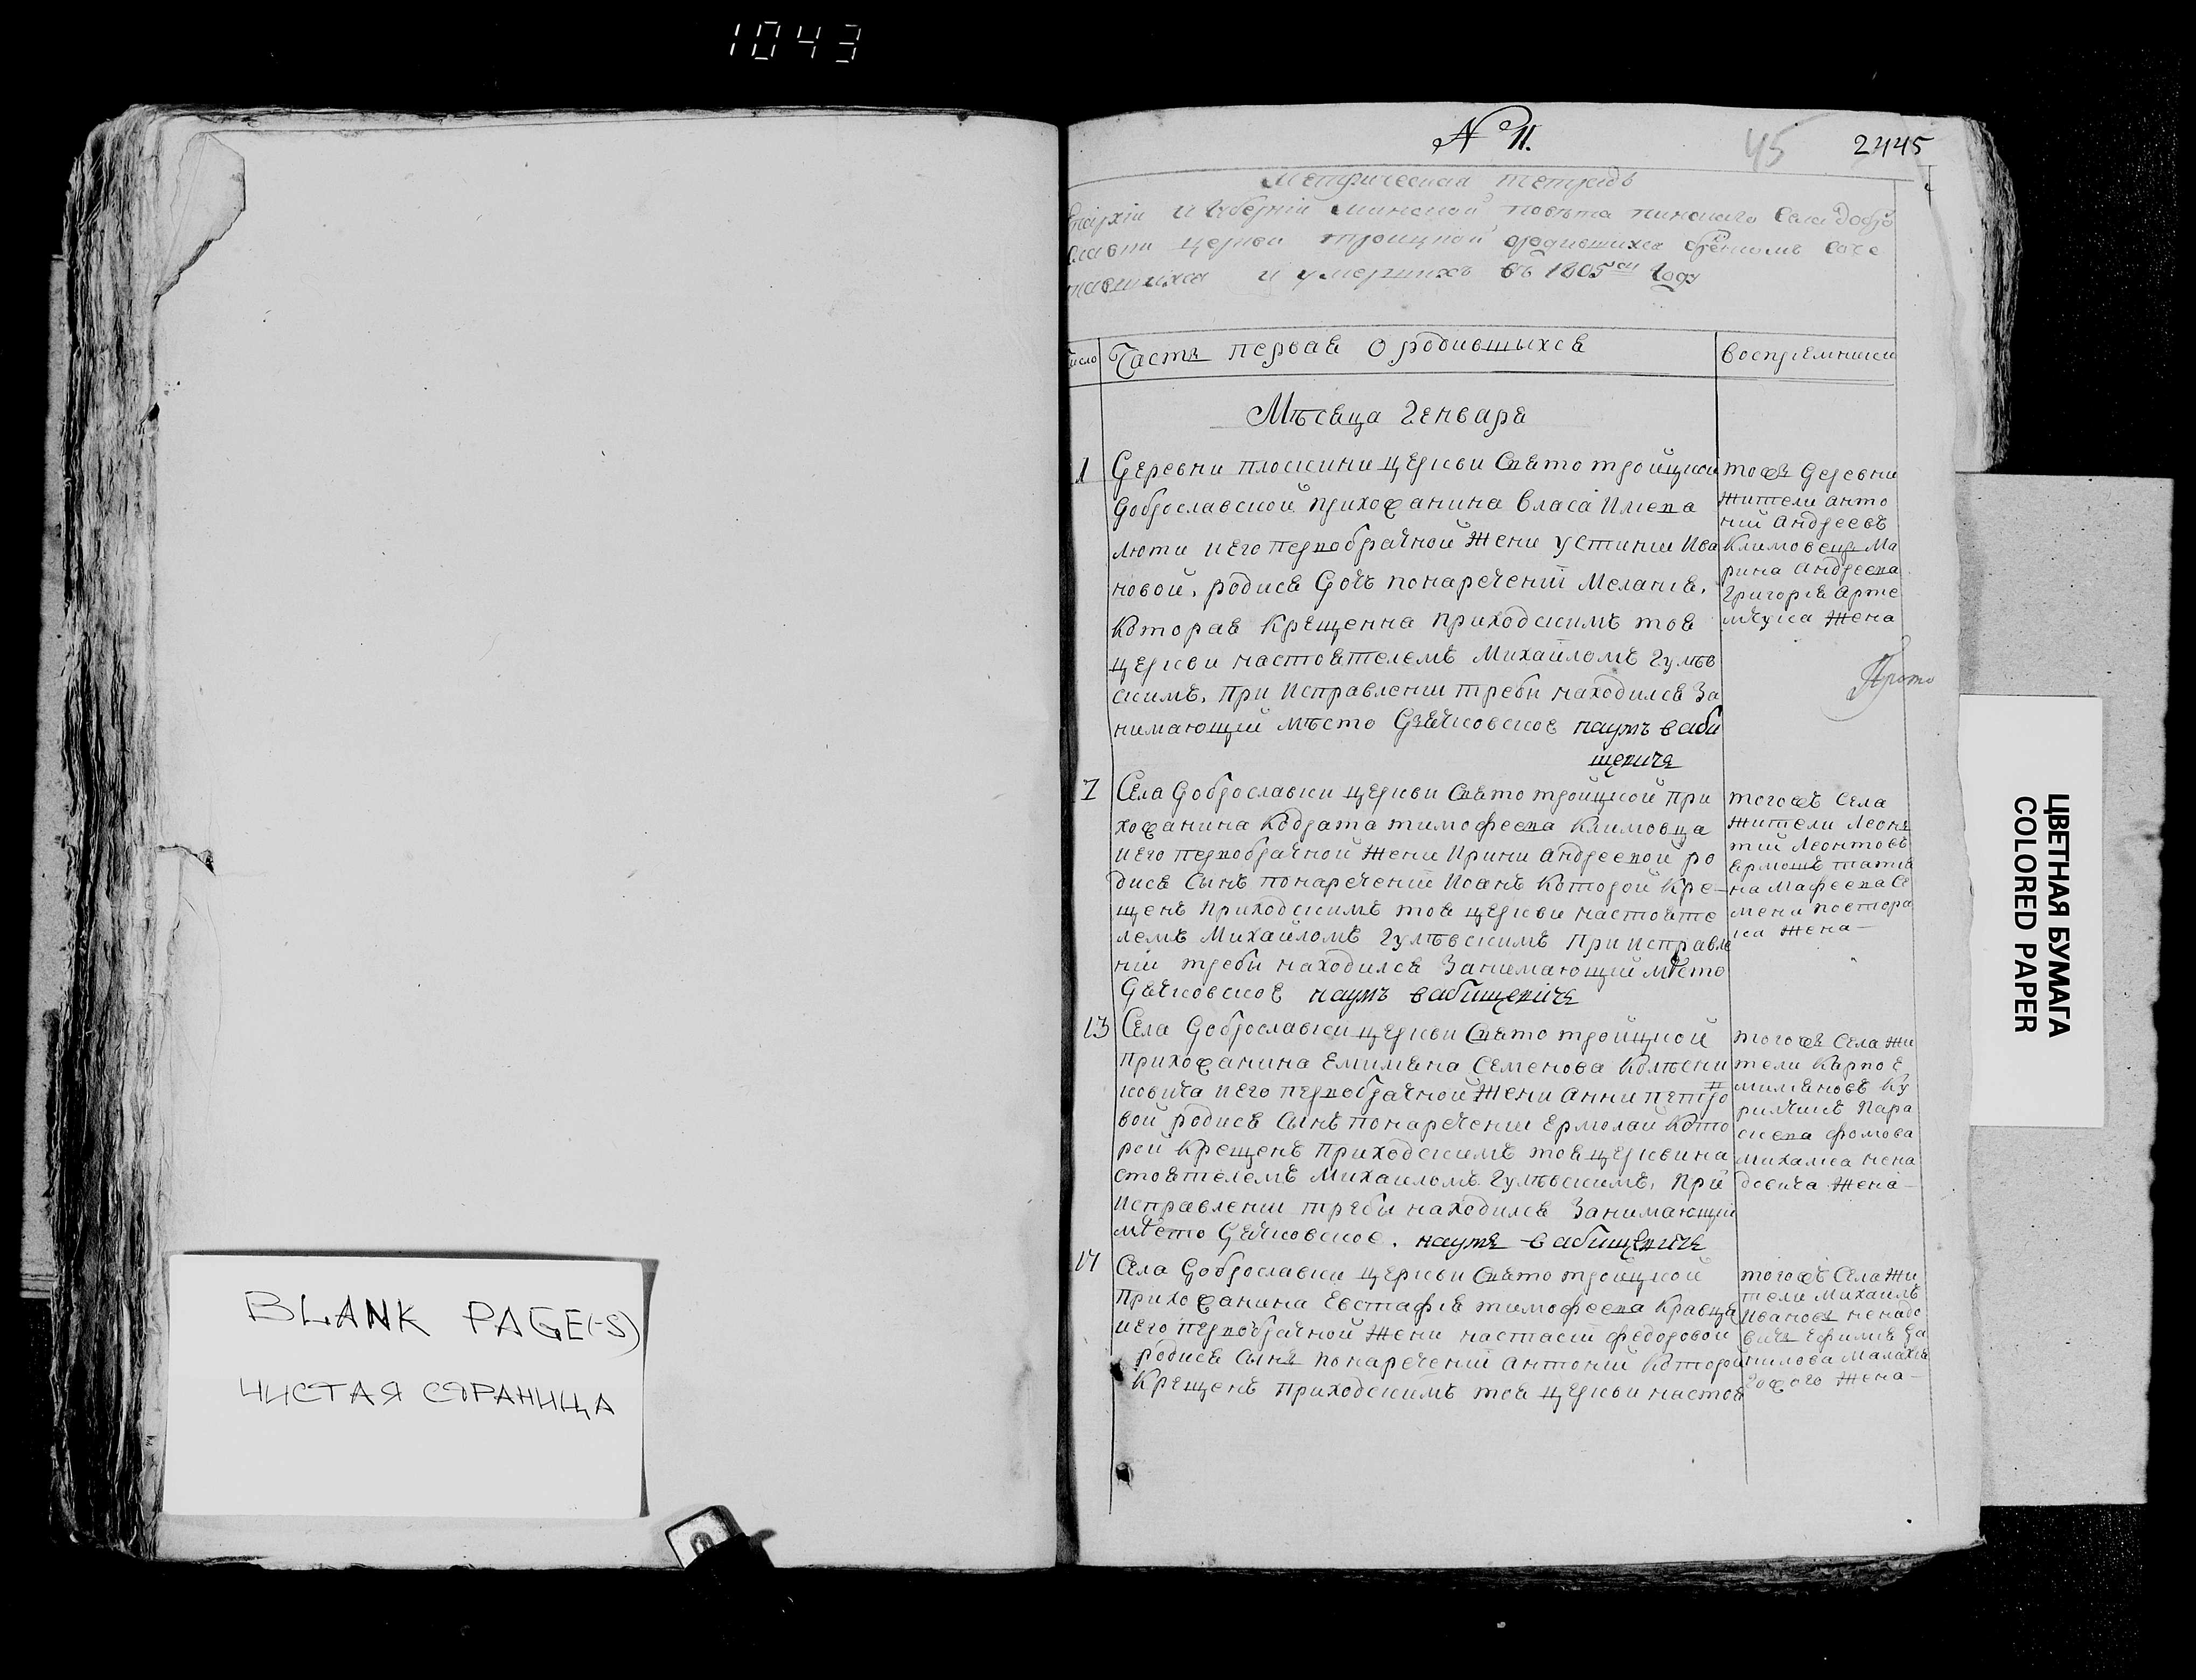 1043
BLANK PAGE(-S)
ЧИСТАЯ СТРАНИЦА
№ 11.
45
2445
Метрическая тетрадь
Епархіи и Губерніи Минской повѣта пинскаго Села Добро
славки церкви троицкой ородившихся бракомъ Соче
тавшихся и умершихъ въ 1805ом Году
Число
Часть первая О родившыхся
воспріемники
Мѣсяца Генваря
1
Деревни плоскини церкви Свято тройцкой
Доброславской прихожанина Власа
люти иего первобрачной Жени устинии Ива
новой, родися Дочь понареченіи Меланія,
Которая Крещенна приходскимъ тоя
церкви настоятелемъ Михаиломъ
скимъ, при Исправленіи треби находился За
нимающій мѣсто Дьячковское наумъ ваби
щевичъ
тояжъ Деревни
Жители анто
ній андреевъ
Климовецъ Ма
рина андреева
Григорія арте
мчука Жена
Прото
7
Села Доброславки церкви Свято тройцкой при
хожанина Кодрата тимофеева Климовца
иего первобрачной Жени Ирини андреевой ро
дися Сынъ понареченіи Иоанъ Которой Кре-
щенъ приходскимъ тоя церкви настояте
лемъ Михаиломъ приисправле
ніи треби находился Занимающій мѣсто
Дьячковское наумъ вабищевичъ
тогожъ Села
Жители Леон
тій Леонтовъ
Ермошъ татия
на Мафеева Се
мена
ка Жена-
13
Села Доброславки церкви Свято тройцкой
прихожанина Емилияна Семенова Колесни
ковича иего первобрачной Жени анни петро
вой родися Сынъ понареченіи Ермолаи Кото
рои Крещенъ приходскимъ тоя церкви на
стоятелемъ Михаиломъ при
Исправленіи треби находился Занимающій
мѣсто Дьячковское. наумъ вабищевичъ
тогожъ Села Жи
тели Карпо Е
милияновъ Ку
Пара
скева фомова
Михалка нена
довича Жена-
17
Села Доброславки церкви Свято тройцкой
прихожанина Евстафія тимофеева Кравца
иего первобрачной Жени настасіи федоровой
родися Сынъ понареченіи антоній Которой
Крещенъ приходскимъ тоя церкви настоя
тогожъ Села Жи
тели Михаилъ
Ивановъ ненадо
вичъ Ефимія Да
нилова Малахія
Жена-
ЦВЕТНАЯ БУМАГА
COLORED PAPER